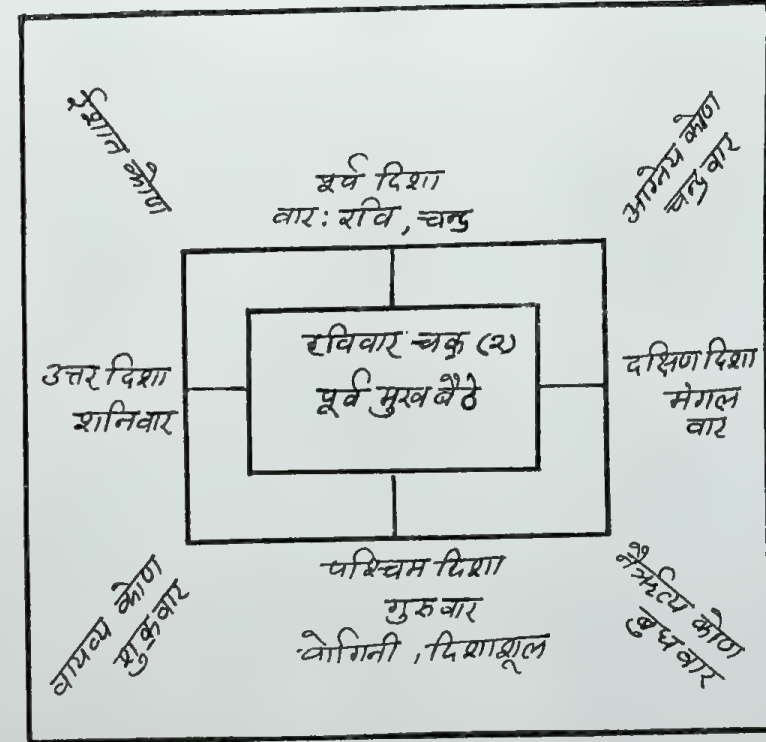 ईशान कोण
पूर्व दिशा
वार: रवि, चन्द्र
आग्नेय कोण
चन्द्र वार
उत्तर दिशा
शनिवार
रविवार चक्र (२)
पूर्व मुख बैठे
दक्षिण दिशा
मंगल
वार
वायव्य कोण
शुक्रवार
पश्चिम दिशा
गुरुवार
योगिनी, दिशाशूल
नैर्ऋत्य कोण
बुधवार